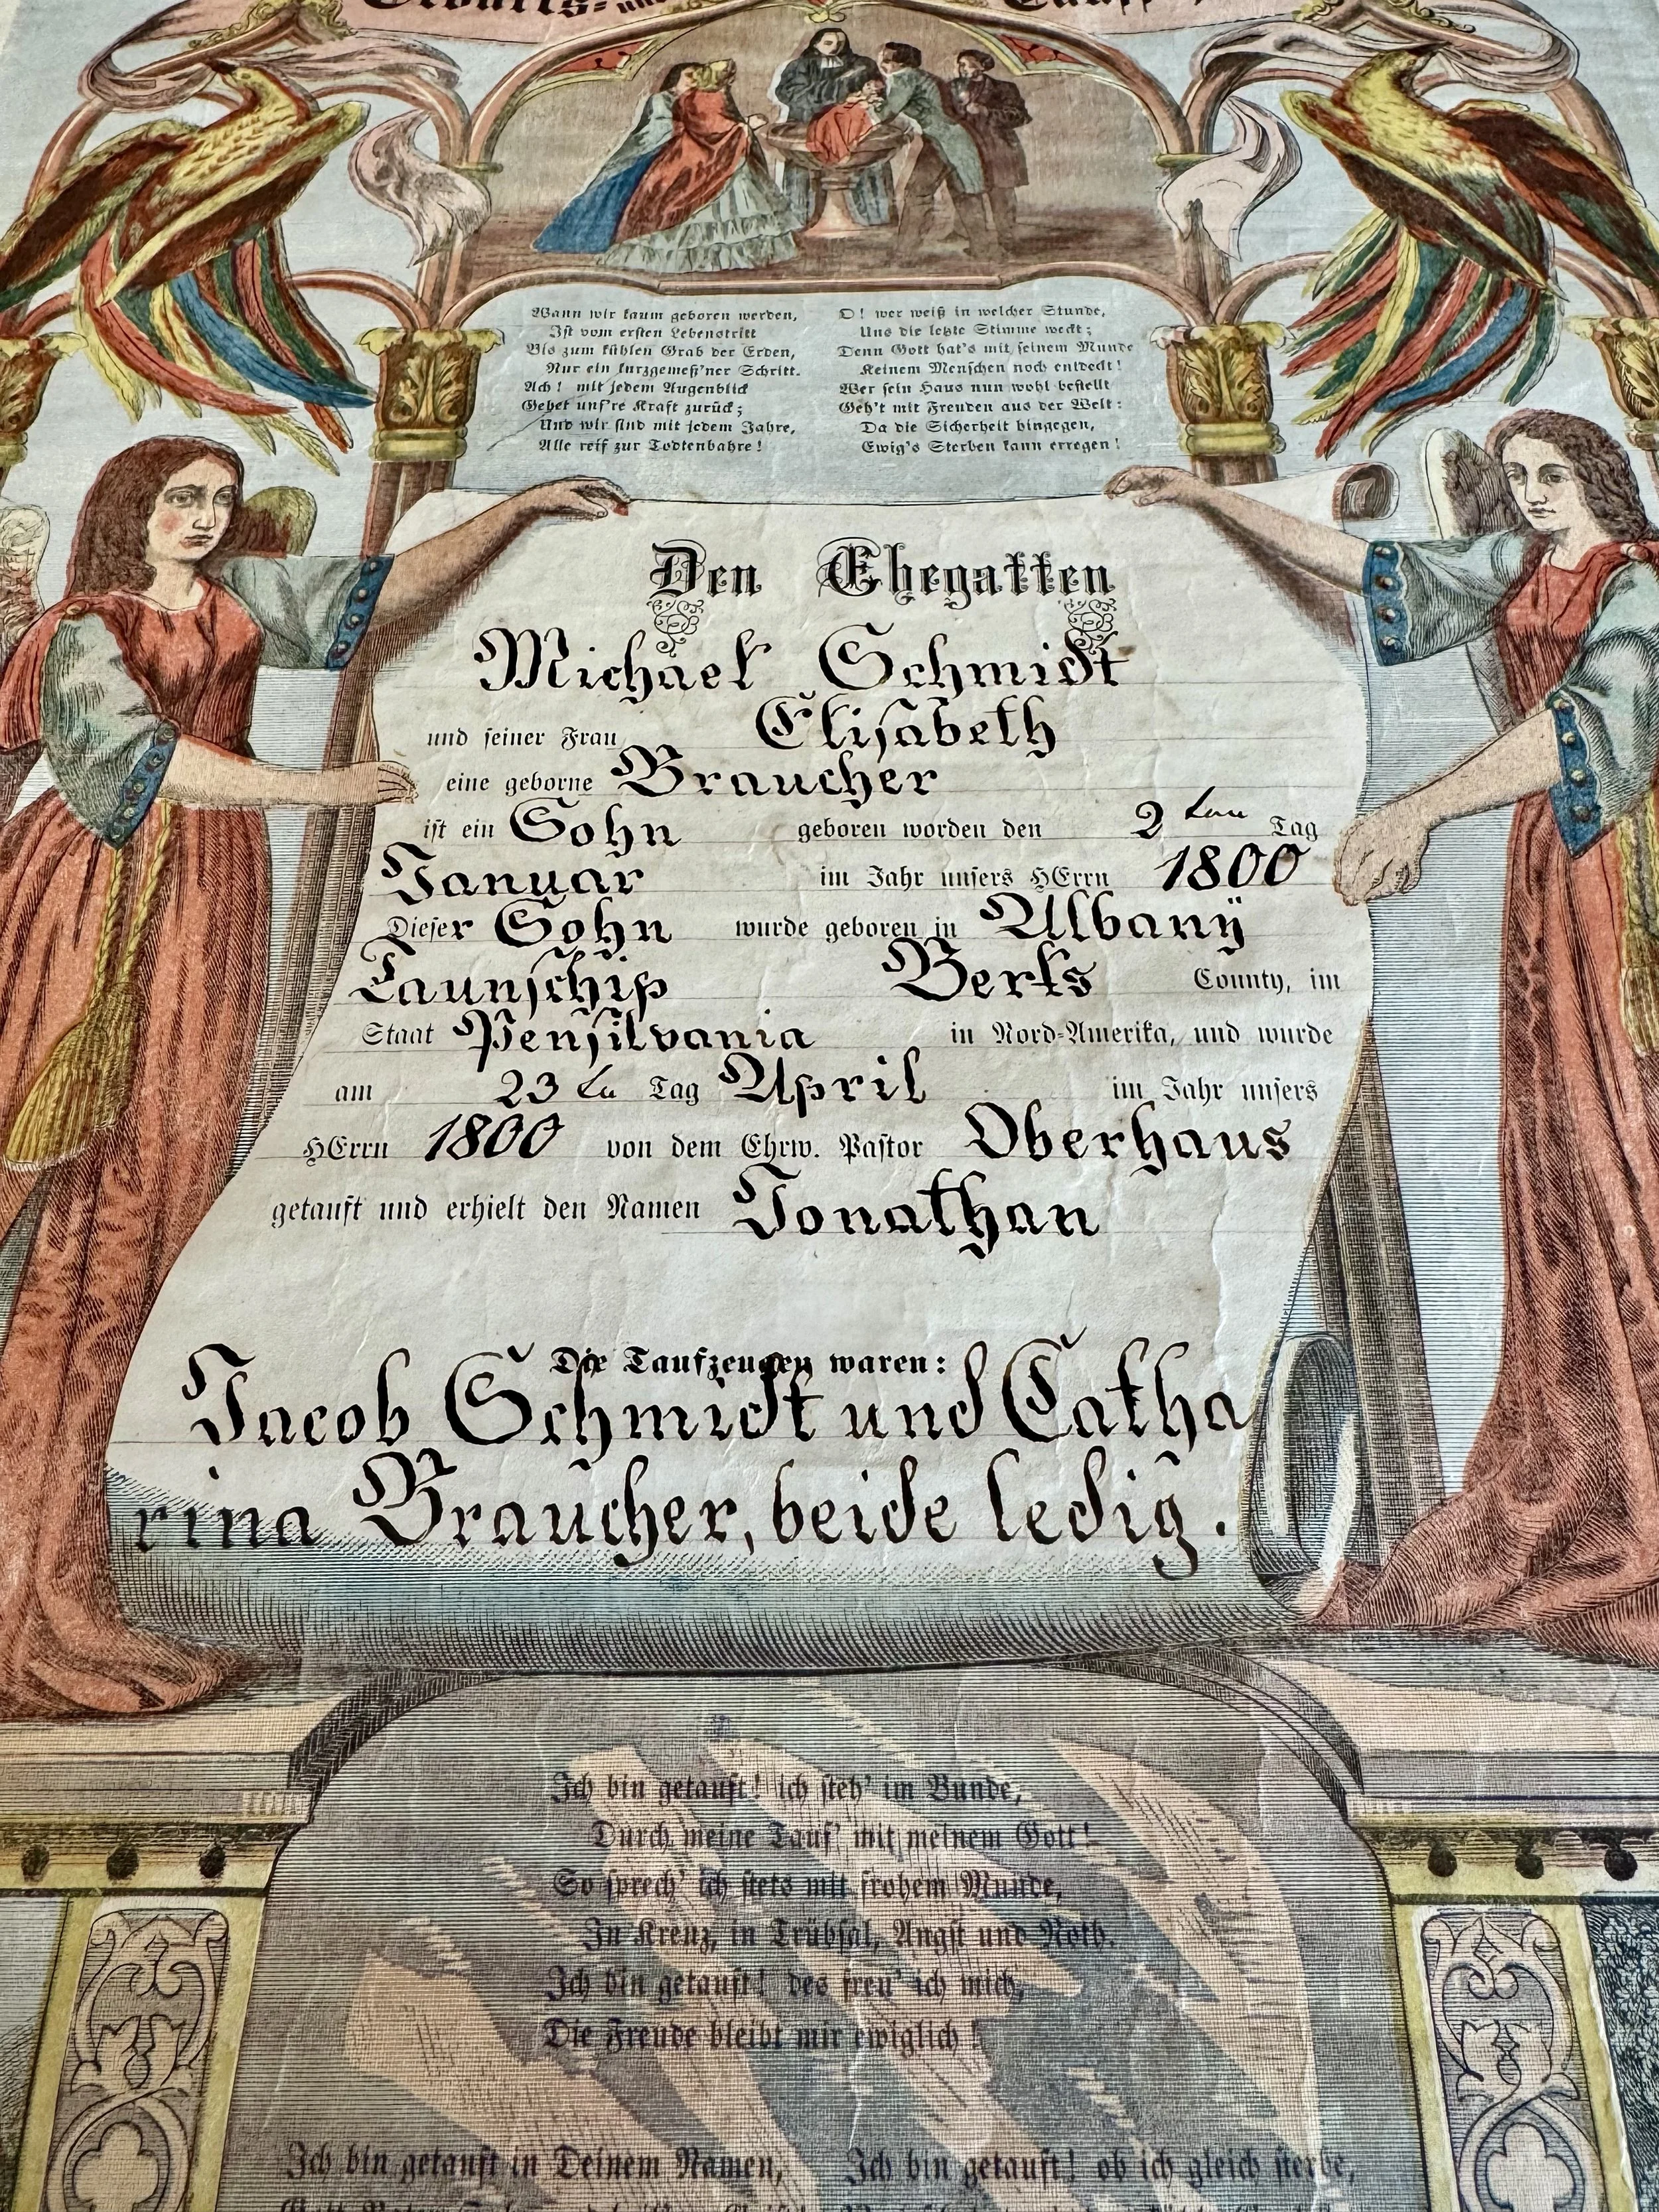 Geburts- und Tauf
Wann wir kaum geboren werden,
Ist vom ersten Lebenstritt
Bis zum kühlen Grab der Erden,
Nur ein kurzgemeß'ner Schritt.
Ach! mit jedem Augenblick
Gehet uns're Kraft zurück;
Und wir sind mit jedem Jahre,
Alle reif zur Todtenbahre!
O! wer weiß in welcher Stunde,
Uns die letzte Stimme weckt;
Denn Gott hat's mit seinem Munde
Keinem Menschen noch entdeckt!
Wer sein Haus nun wohl bestellt
Geh't mit Freuden aus der Welt:
Da die Sicherheit hingegen,
Ewig's Sterben kann erregen!
Den Ehegatten
Michael Schmidt
und seiner Frau Elisabeth
eine geborne Braucher
ist ein Sohn geboren worden den 2 ten Tag
Januar im Jahr unsers HErrn 1800
Dieser Sohn wurde geboren in Albanÿ
Taunschip Berks County, im
Staat Pensilvania in Nord-Amerika, und wurde
am 23 te Tag April im Jahr unsers
HErrn 1800 von dem Ehrw. Pastor Oberhaus
getauft und erhielt den Namen Jonathan
Die Taufzeugen waren:
Jacob Schmidt und Catha
rina Braucher, beide ledig.
Ich bin getauft! ich steh' im Bunde,
Durch meine Tauf' mit meinem Gott!
So sprech' ich stets mit frohem Munde,
In Kreuz, in Trübsal, Angst und Noth.
Ich bin getauft! des freu' ich mich,
Die Freude bleibt mir ewiglich!
Ich bin getauft in Deinem Namen,
Ich bin getauft! ob ich gleich sterbe,